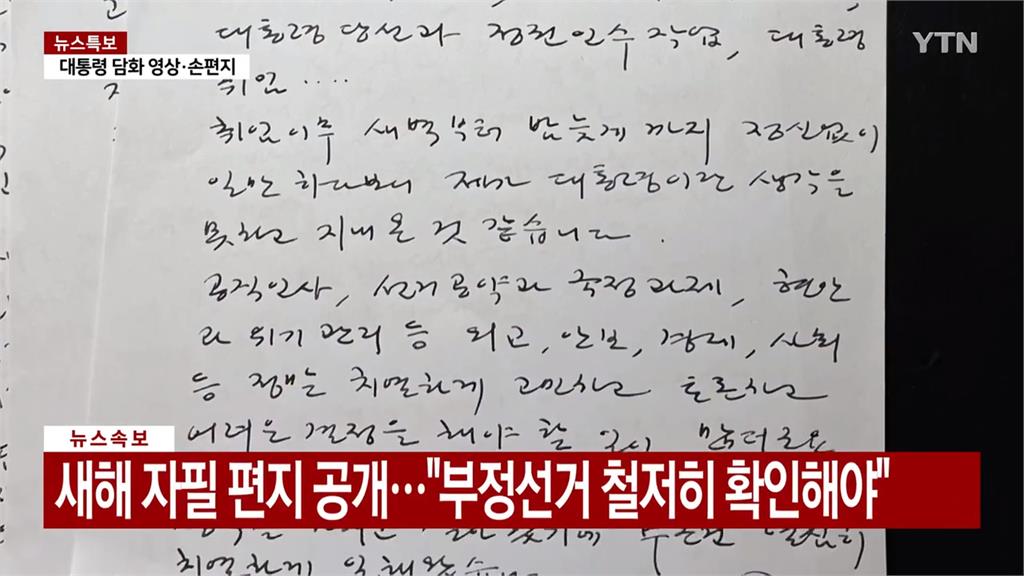 뉴스특보
대통령 담화 영상·손편지
YTN
대통령 당선과 정권인수 작업, 대통령
취임 ....
취임이후 새벽부터 밤늦게 까지 정신없이
일만 하다보니 제가 대통령이란 생각을
못하고 지내 온 것 같습니다.
공직인사, 선거공약과 국정과제, 현안
과 위기 관리 등 외교, 안보, 경제, 사회
등 정책는 치열하게 고민하고 토론하고
어려운 결정을 해야 할 일이 많더군요
뉴스속보
새해 자필 편지 공개…"부정선거 철저히 확인해야"
치열하게 일해왔습니